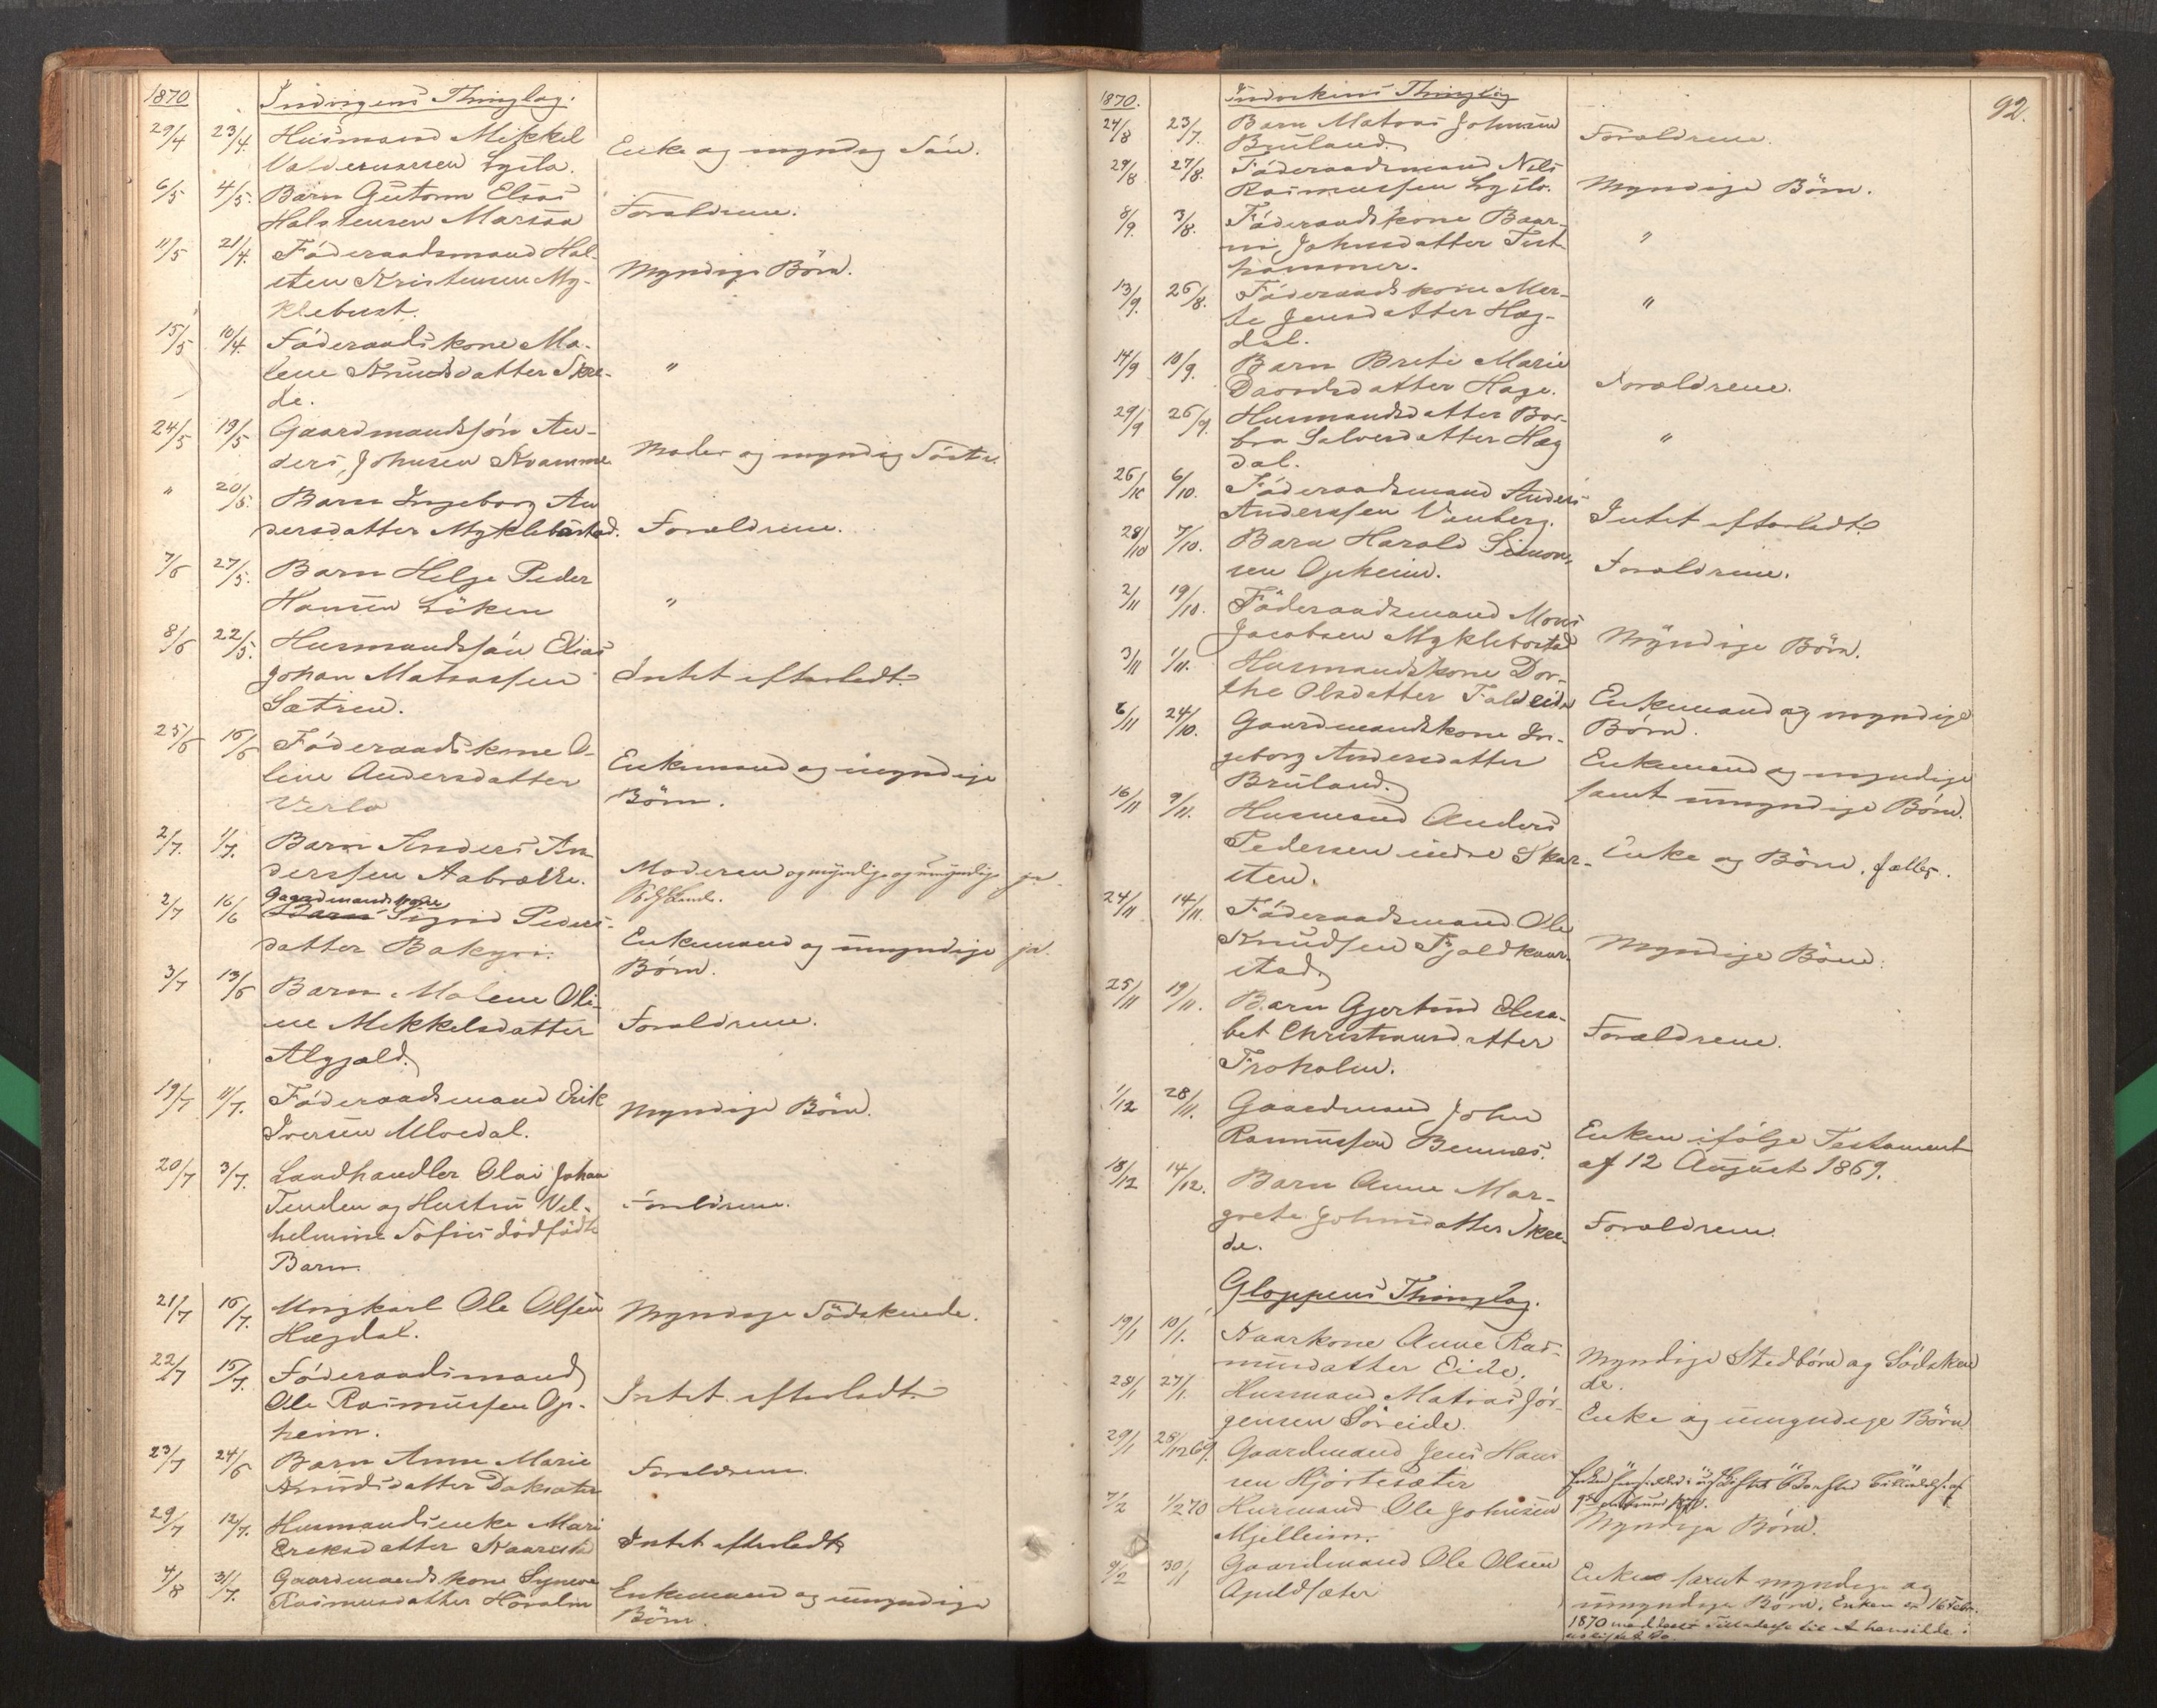 1870 Indvigens Thinglag.
29/4 23/4. Husmand Mikkel
Valdemarsen Lysla. Enke og myndig Sön.
6/5 4/5. Barn Guttorm Elias
Halstensen Marsaa Forældrene.
11/5 21/4. Föderaadsmand Hal-
sten Kristensen My- Myndige Börn.
klebust.
15/5 10/4. Föderaadskone Ma-
lene Knudsdatter Skre- "
de.
24/5 19/5 Gaardmandssön An-
ders Johnsen Kvamme Moder og myndig Söster.
" 20/5. Barn Ingeborg An
dersdatter Myklebustad. Forældrene.
7/6 27/5. Barn Helge Peder
Hansen Löken "
8/6 22/5. Husmandssön Elias
Johan Matiassen Intet efterladt.
Sætren.
25/6 16/6 Föderaadskone O-
line Andersdatter Enkemand og myndige
Verlo Börn.
2/7. 1/7. Barn Anders An
derssen Aabrække. Moderen og myndige og umyndige ja.
2/7 16/6 Gaardmandskone
Barn Sigrid Peders-
datter Bakgri. Enkemand og umyndige ja.
Börn.
3/7 13/6 Barn Malene Oli-
ne Mikkelsdatter Forældrene.
Algjæld.
19/7 11/7. Föderaadsmand Erik
Iversen Mloedal. Myndige Börn.
20/7 3/7. Landhandler Olai Johan
Tenden og Hustru Vil- Forældrene.
helmine Sofies dödfödte
Barn.
21/7 16/7. Ungkarl Ole Olsen Myndige Södskende.
Hægdal.
22/7 15/7. Föderaadsmand
Ole Rasmussen Op- Intet efterladt.
heim.
23/7 24/6 Barn Anne Marie Forældrene.
Knudsdatter Doksæter
29/7 12/7. Husmandsenke Mari
Eriksdatter Kaarstad Intet efterladt.
4/8 31/7. Gaardmandskone Synneve
Rasmusdatter Hövolm Enkemand og umyndige
Börn.
92.
1870. Indvikens Thinglag
24/8 23/7. Barn Matias Johnsen
Bruland. Forældrene.
24/8 27/8. Föderaadsmand Nils
Rasmussen Lyslo. Myndige Börn.
8/9. 3/8. Föderaadskone Baar-
ni Johnsdatter Tist- "
hammer.
13/9. 26/8. Föderaadskone Mar-
te Jensdatter Hæg- "
dal.
14/9 10/9. Barn Brete Marie
Davidsdatter Hage. Forældrene.
29/9 26/9. Husmandsdatter Bar-
bra Salvesdatter Hæg "
dal.
26/10 6/10. Föderaadsmand Anders
Anderssen Vanberg. Intet efterladt.
28/10 7/10. Barn Harald Simon-
sen Opheim. Forældrene.
2/11 19/10. Föderaadsmand Mons
Jacobsen Myklebostad Myndige Börn.
3/11 1/11. Husmandskone Dor-
the Olsdatter Faleide Enkemand og myndige
Börn.
6/11 24/10. Gaardmandskone In-
geborg Andersdatter Enkemand og myndige
Bruland. samt umyndige Börn.
16/11 9/11. Husmand Anders
Pedersen indre Skar- Enke og Börn, fælles.
sten.
24/11 14/11. Föderaadsmand Ole
Knudsen Fjeldkaar- Myndige Börn.
stad
25/11 19/11. Barn Gjertrud Elisa-
bet Christiansdatter Forældrene.
Froholm.
1/12 28/11. Gaardmand John
Rasmussen Bennes. Enken ifölge Testament
af 12 August 1869.
18/12 14/12. Barn Anne Mar-
grete Johnsdatter Skre- Forældrene.
de.
Gloppens Thinglag.
19/1 10/1. Kaarkone Anne Ras-
musdatter Eide. Myndige Stedbörn og Södsken
de.
28/1 27/1. Husmand Matias Jör-
gensen Söreide. Enke og umyndige Börn
29/1 28/12 69. Gaardmand Jens Han
sen Hjortesæter
7/2 1/2 70 Husmand Ole Johnsen Myndige Börn.
Mjellheim.
9/2 30/1 Gaardmand Ole Olsen
Apildsæter Enke samt myndige og
umyndige Börn. Enken er 16 Febr.
1870 meddeelt Tilladelse til at hensidde i
uskiftet Bo.